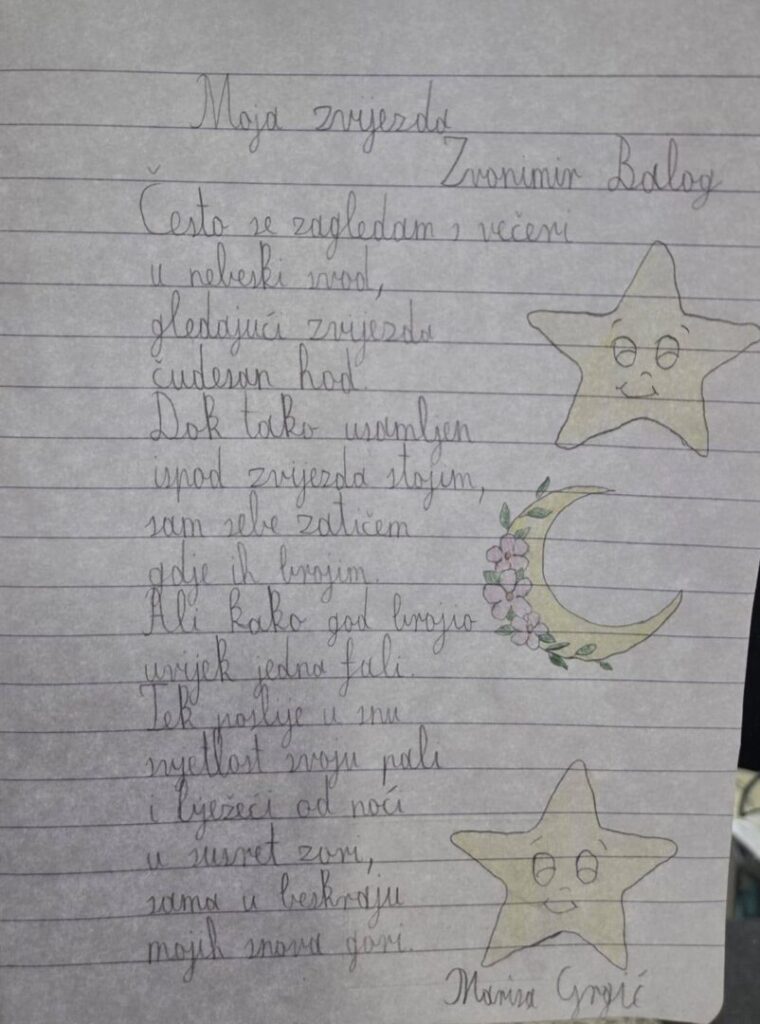 Moja zvijezda
Zvonimir Balog
Često se zagledam s večeri
u nebeski svod,
gledajući zvijezda
čudesan hod.
Dok tako usamljen
ispod zvijezda stojim,
sam sebe zatičem
gdje ih brojim.
Ali kako god brojio
uvijek jedna fali.
Tek poslije u snu
svjetlost svoju pali
i bježeći od noći
u susret zori,
sama u beskraju
mojih snova gori.
Marisa Grgić